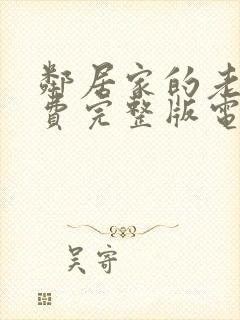 鄰居家的老
費完整版電
吴寄